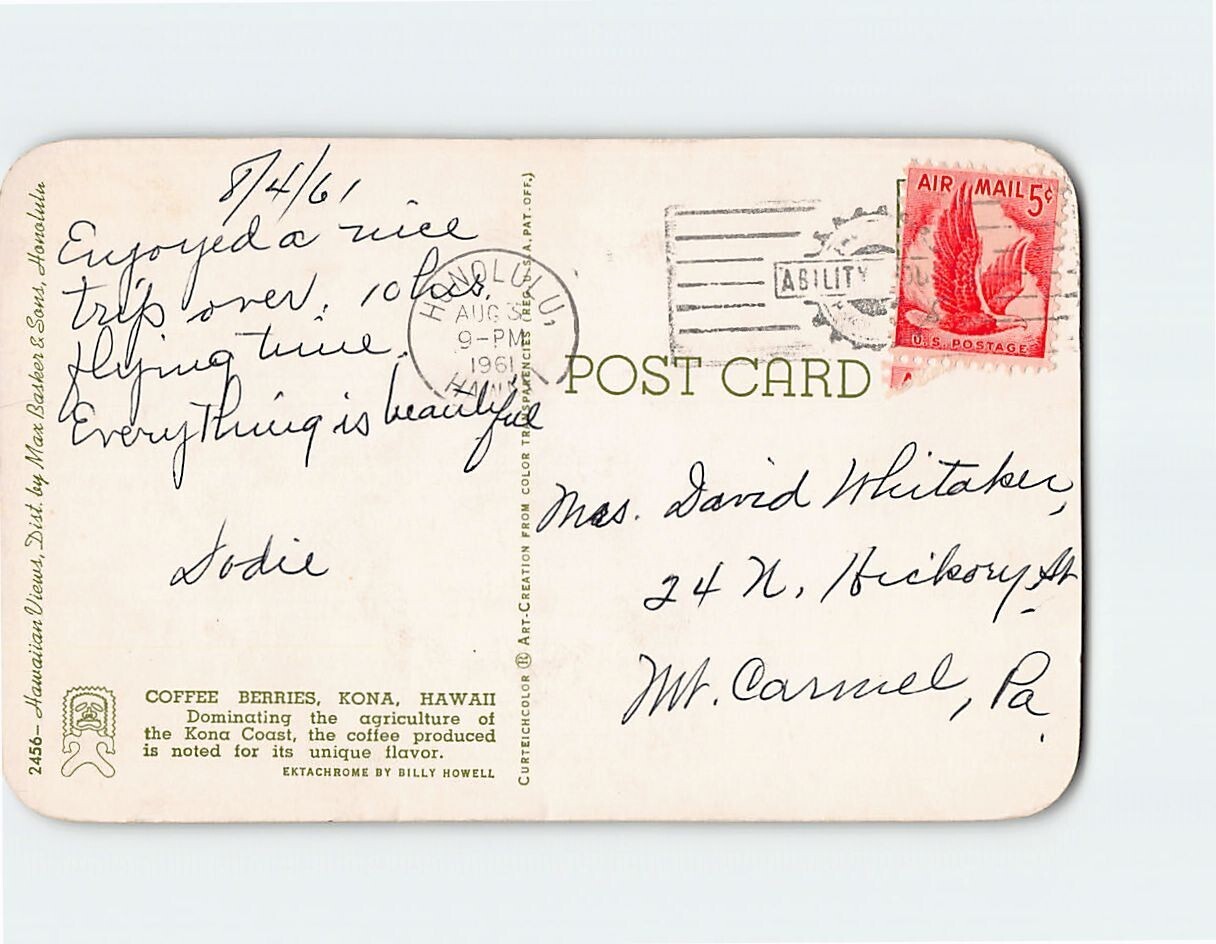 8/4/61
Enjoyed a nice
trip over. 10 hrs.
flying time.
Everything is beautiful
Dodie
COFFEE BERRIES, KONA, HAWAII
Dominating the agriculture of
the Kona Coast, the coffee produced
is noted for its unique flavor.
EKTACHROME BY BILLY HOWELL
2456— Hawaiian Views, Dist. by Max Basker & Sons, Honolulu
CURTEICHCOLOR ® ART-CREATION FROM COLOR TRANSPARENCIES (REG. U.S.A. PAT. OFF.)
HONOLULU,
AUG 3
9-PM
1961
HAWAII
ABILITY
AIR MAIL 5¢
U.S. POSTAGE
POST CARD
Mrs. David Whitaker,
24 N. Hickory St.
Mt. Carmel, Pa.